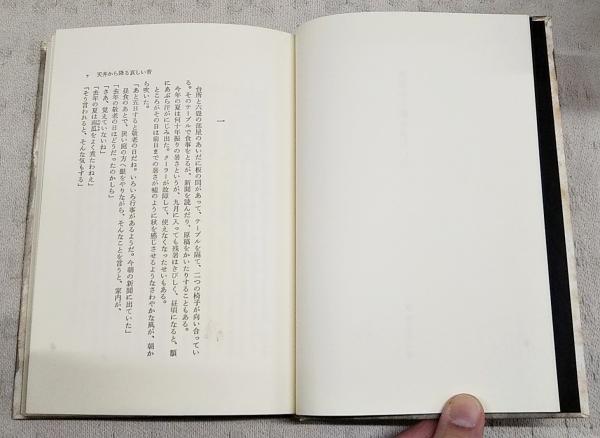 7 天井から降る哀しい音
一
台所と六畳の部屋のあいだに板の間があって、テーブルを隔て、二つの椅子が向い合ってい
る。そのテーブルで食事をとるが、新聞を読んだり、原稿をかいたりすることもある。
今年の夏は何十年振りの暑さというが、九月に入っても残暑はきびしく、昼頃になると、額
にあぶら汗がにじみ出た。クーラーが故障して、使えなくなったせいもある。
ところがその日は前日までの暑さが嘘のように秋を感じさせるようなさわやかな風が、朝か
ら吹いた。
「あと五日すると敬老の日だね。いろいろ行事があるようだ。今朝の新聞に出ていた」
昼食のあとで、狭い庭の方へ眼をやりながら、そんなことを言うと、家内が、
「去年の敬老の日はどうだったのかしら」
「さあ、覚えていないね」
「去年の夏は南瓜をよく煮たわねえ」
「そう言われると、そんな気もする」